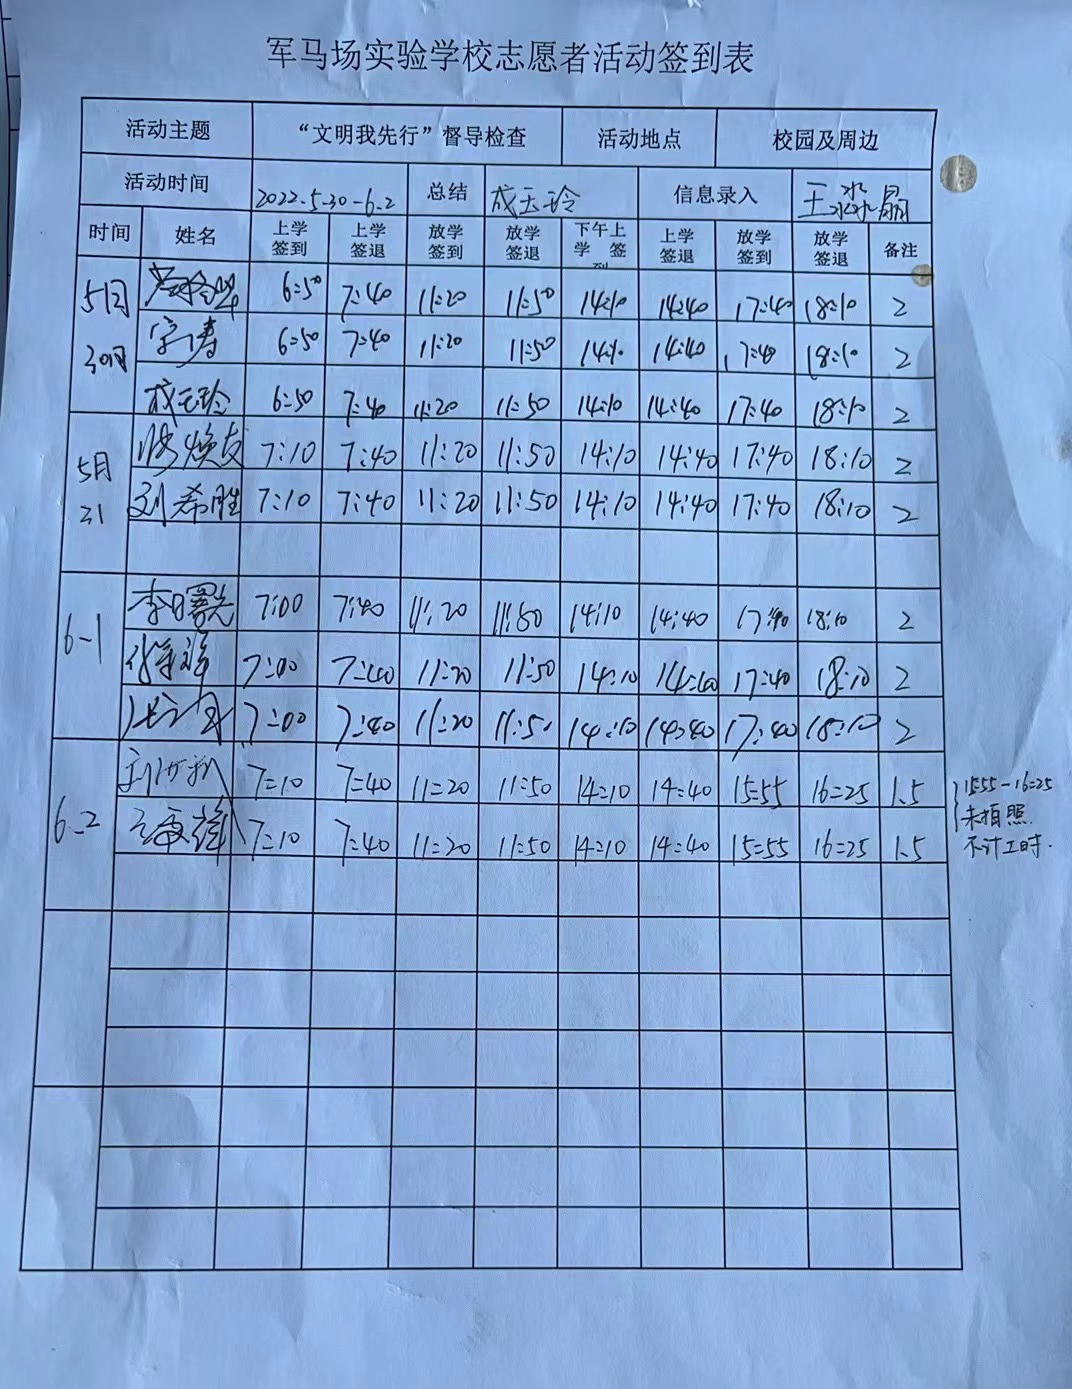 军马场实验学校志愿者活动签到表
活动主题 “文明我先行”督导检查 活动地点 校园及周边
活动时间 2022.5.30-6.2 总结 成玉玲 信息录入 王淼晶
时间 姓名 上学签到 上学签退 放学签到 放学签退 下午上学 签到 上学签退 放学签到 放学签退 备注
5月30日 6:50 7:40 11:20 11:50 14:10 14:40 17:40 18:10 2
6:50 7:40 11:20 11:50 14:10 14:40 17:40 18:10 2
成玉玲 6:50 7:40 11:20 11:50 14:10 14:40 17:40 18:10 2
5月31 焕友 7:10 7:40 11:20 11:50 14:10 14:40 17:40 18:10 2
刘希胜 7:10 7:40 11:20 11:50 14:10 14:40 17:40 18:10 2
6-1 李曙光 7:00 7:40 11:20 11:50 14:10 14:40 17:40 18:10 2
7:00 7:40 11:20 11:50 14:10 14:40 17:40 18:10 2
7:00 7:40 11:20 11:50 14:10 14:40 17:40 18:10 2
6-2 7=10 7=40 11=20 11=50 14=10 14=40 15=55 16=25 1.5
7=10 7=40 11=20 11=50 14=10 14=40 15=55 16=25 1.5
1555-16=25
未拍照
不计工时.